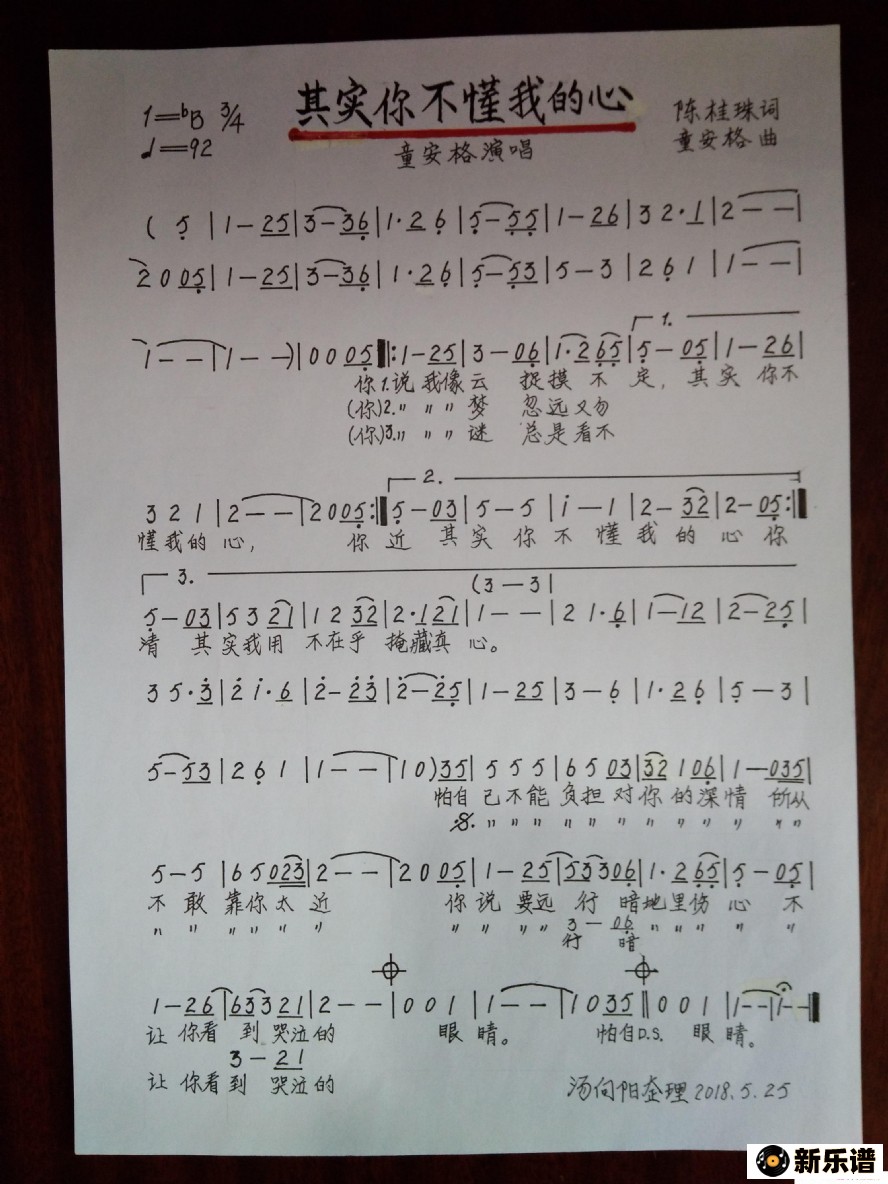 其实你不懂我的心
1=♭B 3/4
♩=92
陈桂珠词
童安格曲
童安格演唱
( 5̣ | 1 – 25̣ | 3 – 36̣ | 1· 2 6̣ | 5̣ – 5̣5̣ | 1 – 26 | 3 2·1 | 2 – – |
2 0 05̣ | 1 – 25̣ | 3 – 36̣ | 1·26̣ | 5̣ – 5̣3 | 5 – 3 | 2 6̣ 1 | 1 – – |
1.
1 – – | 1 – –) | 0 0 05̣ ‖: 1 – 25̣ | 3 – 06̣ | 1·2 6̣5̣ | 5̣ – 05̣ | 1 – 26 |
你1.说 我像云 捉摸 不 定, 其实 你不
(你)2.〃 〃 〃 梦 忽远又勿
(你)3.〃 〃 〃 谜 总是看不
2.
3 2 1 | 2 – – | 2 0 05̣ :‖ 5̣ – 03 | 5 – 5 | i – 1 | 2 – 32 | 2 – 05̣ :‖
懂我的 心, 你 近 其实 你 不 懂 我 的 心 你
3. (3 – 3|
5̣ – 03 | 5 3 21 | 1 2 32 | 2·1 21 | 1 – – | 2 1·6̣ | 1 – 12 | 2 – 25̣ |
清 其实我用 不在乎 掩藏真 心。
3 5·3̇ | 2̇ i·6 | 2̇ – 2̇3̇ | 2̇ – 2̇5̣ | 1 – 25 | 3 – 6̣ | 1·2 6̣ | 5̣ – 3 |
5 – 53 | 2 6̣ 1 | 1 – – | 1 0 ) 35 | 5 5 5 | 6 5 03 | 32 1 06̣ | 1 – 035 |
怕自 己不能 负担 对你 的深情 所从
𝄋. 〃 〃 〃 〃 〃 〃 〃 〃 〃 〃 〃 〃
5 – 5 | 6 5 023 | 2 – – | 2 0 05̣ | 1 – 25 | 53306̣ | 1·2 6̣5̣ | 5̣ – 05̣ |
不 敢 靠你 太 近 你 说 要远 行 暗地里伤 心 不
〃 〃 〃 〃 〃 〃 〃 〃 〃 〃 3 – 06̣ 〃 〃 〃 〃 〃
行 暗
1 – 26 | 63321 | 2 – – | 0 0 1 | 1 – – | 1 0 35 ‖ 0 0 1 | 1 – – | 1 – – ‖
让 你看 到 哭泣的 眼 睛。 怕自D.S. 眼 睛。
3 – 21
让 你看到 哭泣的
汤向阳整理2018.5.25
新乐谱